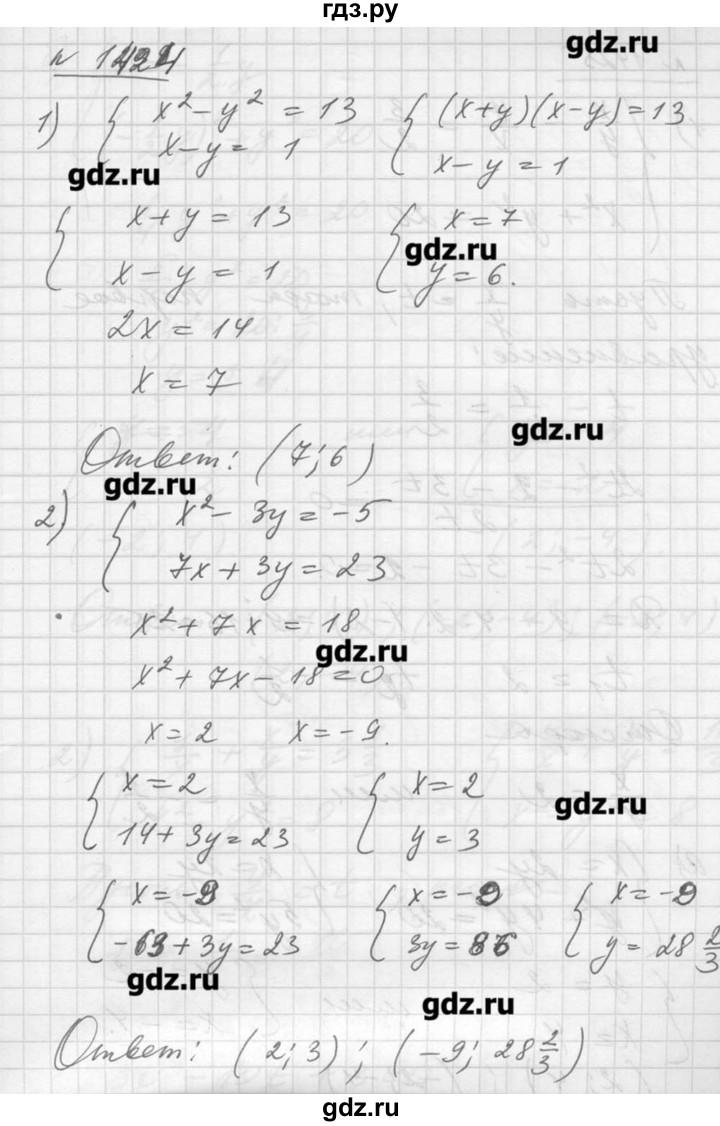 гдз.ру
n 1424
gdz.ru
1) { x² - y² = 13 { (x+y)(x-y) = 13
x - y = 1 x - y = 1
gdz.ru
{ x + y = 13 { x = 7
gdz.ru
x - y = 1 y = 6.
2x = 14
x = 7
gdz.ru
Ответ: (7; 6)
gdz.ru
2) { x² - 3y = -5
7x + 3y = 23
x² + 7x = 18
gdz.ru
x² + 7x - 18 = 0
x = 2 x = -9.
{ x = 2 { x = 2
gdz.ru
14 + 3y = 23 y = 3
{ x = -9 { x = -9 { x = -9
-63 + 3y = 23 3y = 86 y = 28 2/3
gdz.ru
gdz.ru
Ответ: (2; 3); (-9; 28 2/3)
gdz.ru